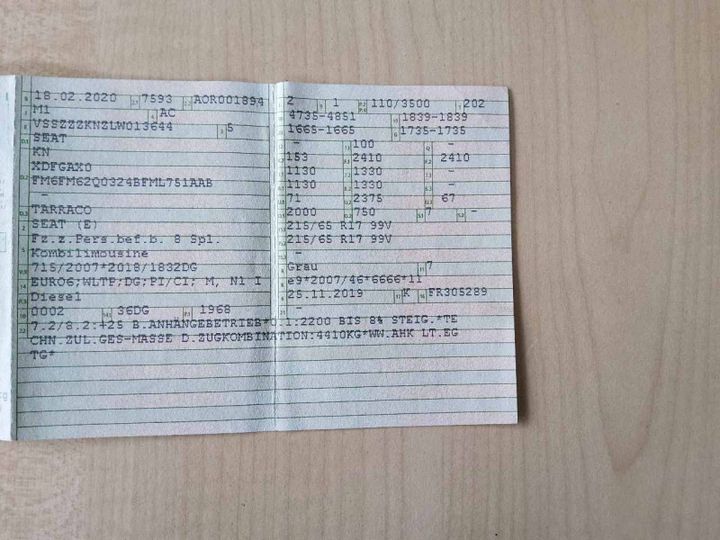 18.02.2020 7593 AOR001894
M1 AC
VSSZZZKNZLW013644 5
SEAT
KN
XDFGAX0
FM6FM62Q0324BFML751AAB
-
TARRACO
SEAT (E)
Fz.z.Pers.bef.b. 8 Spl.
Kombilimousine
715/2007*2018/1832DG
EURO6;WLTP;DG;PI/CI; M, N1 I
Diesel
0002 36DG 1968
2 1 110/3500 202
4735-4851 1839-1839
1665-1665 1735-1735
- 100 -
153 2410 2410
1130 1330 -
1130 1330 -
71 2375 67
2000 750 7 -
215/65 R17 99V
215/65 R17 99V
-
Grau 7
e9*2007/46*6666*11
25.11.2019 K FR305289
-
7.2/8.2:+25 B.ANHÄNGEBETRIEB*O.1:2200 BIS 8% STEIG.*TE
CHN.ZUL.GES-MASSE D.ZUGKOMBINATION:4410KG*WW.AHK LT.EG
TG*